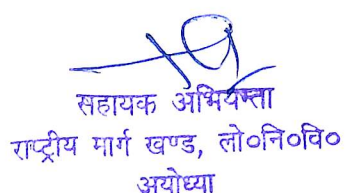 सहायक अभियन्ता
राष्ट्रीय मार्ग खण्ड, लो०नि०वि०
अयोध्या